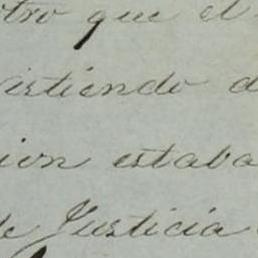 otro que el
istiendo d
ion estaba
de Justicia